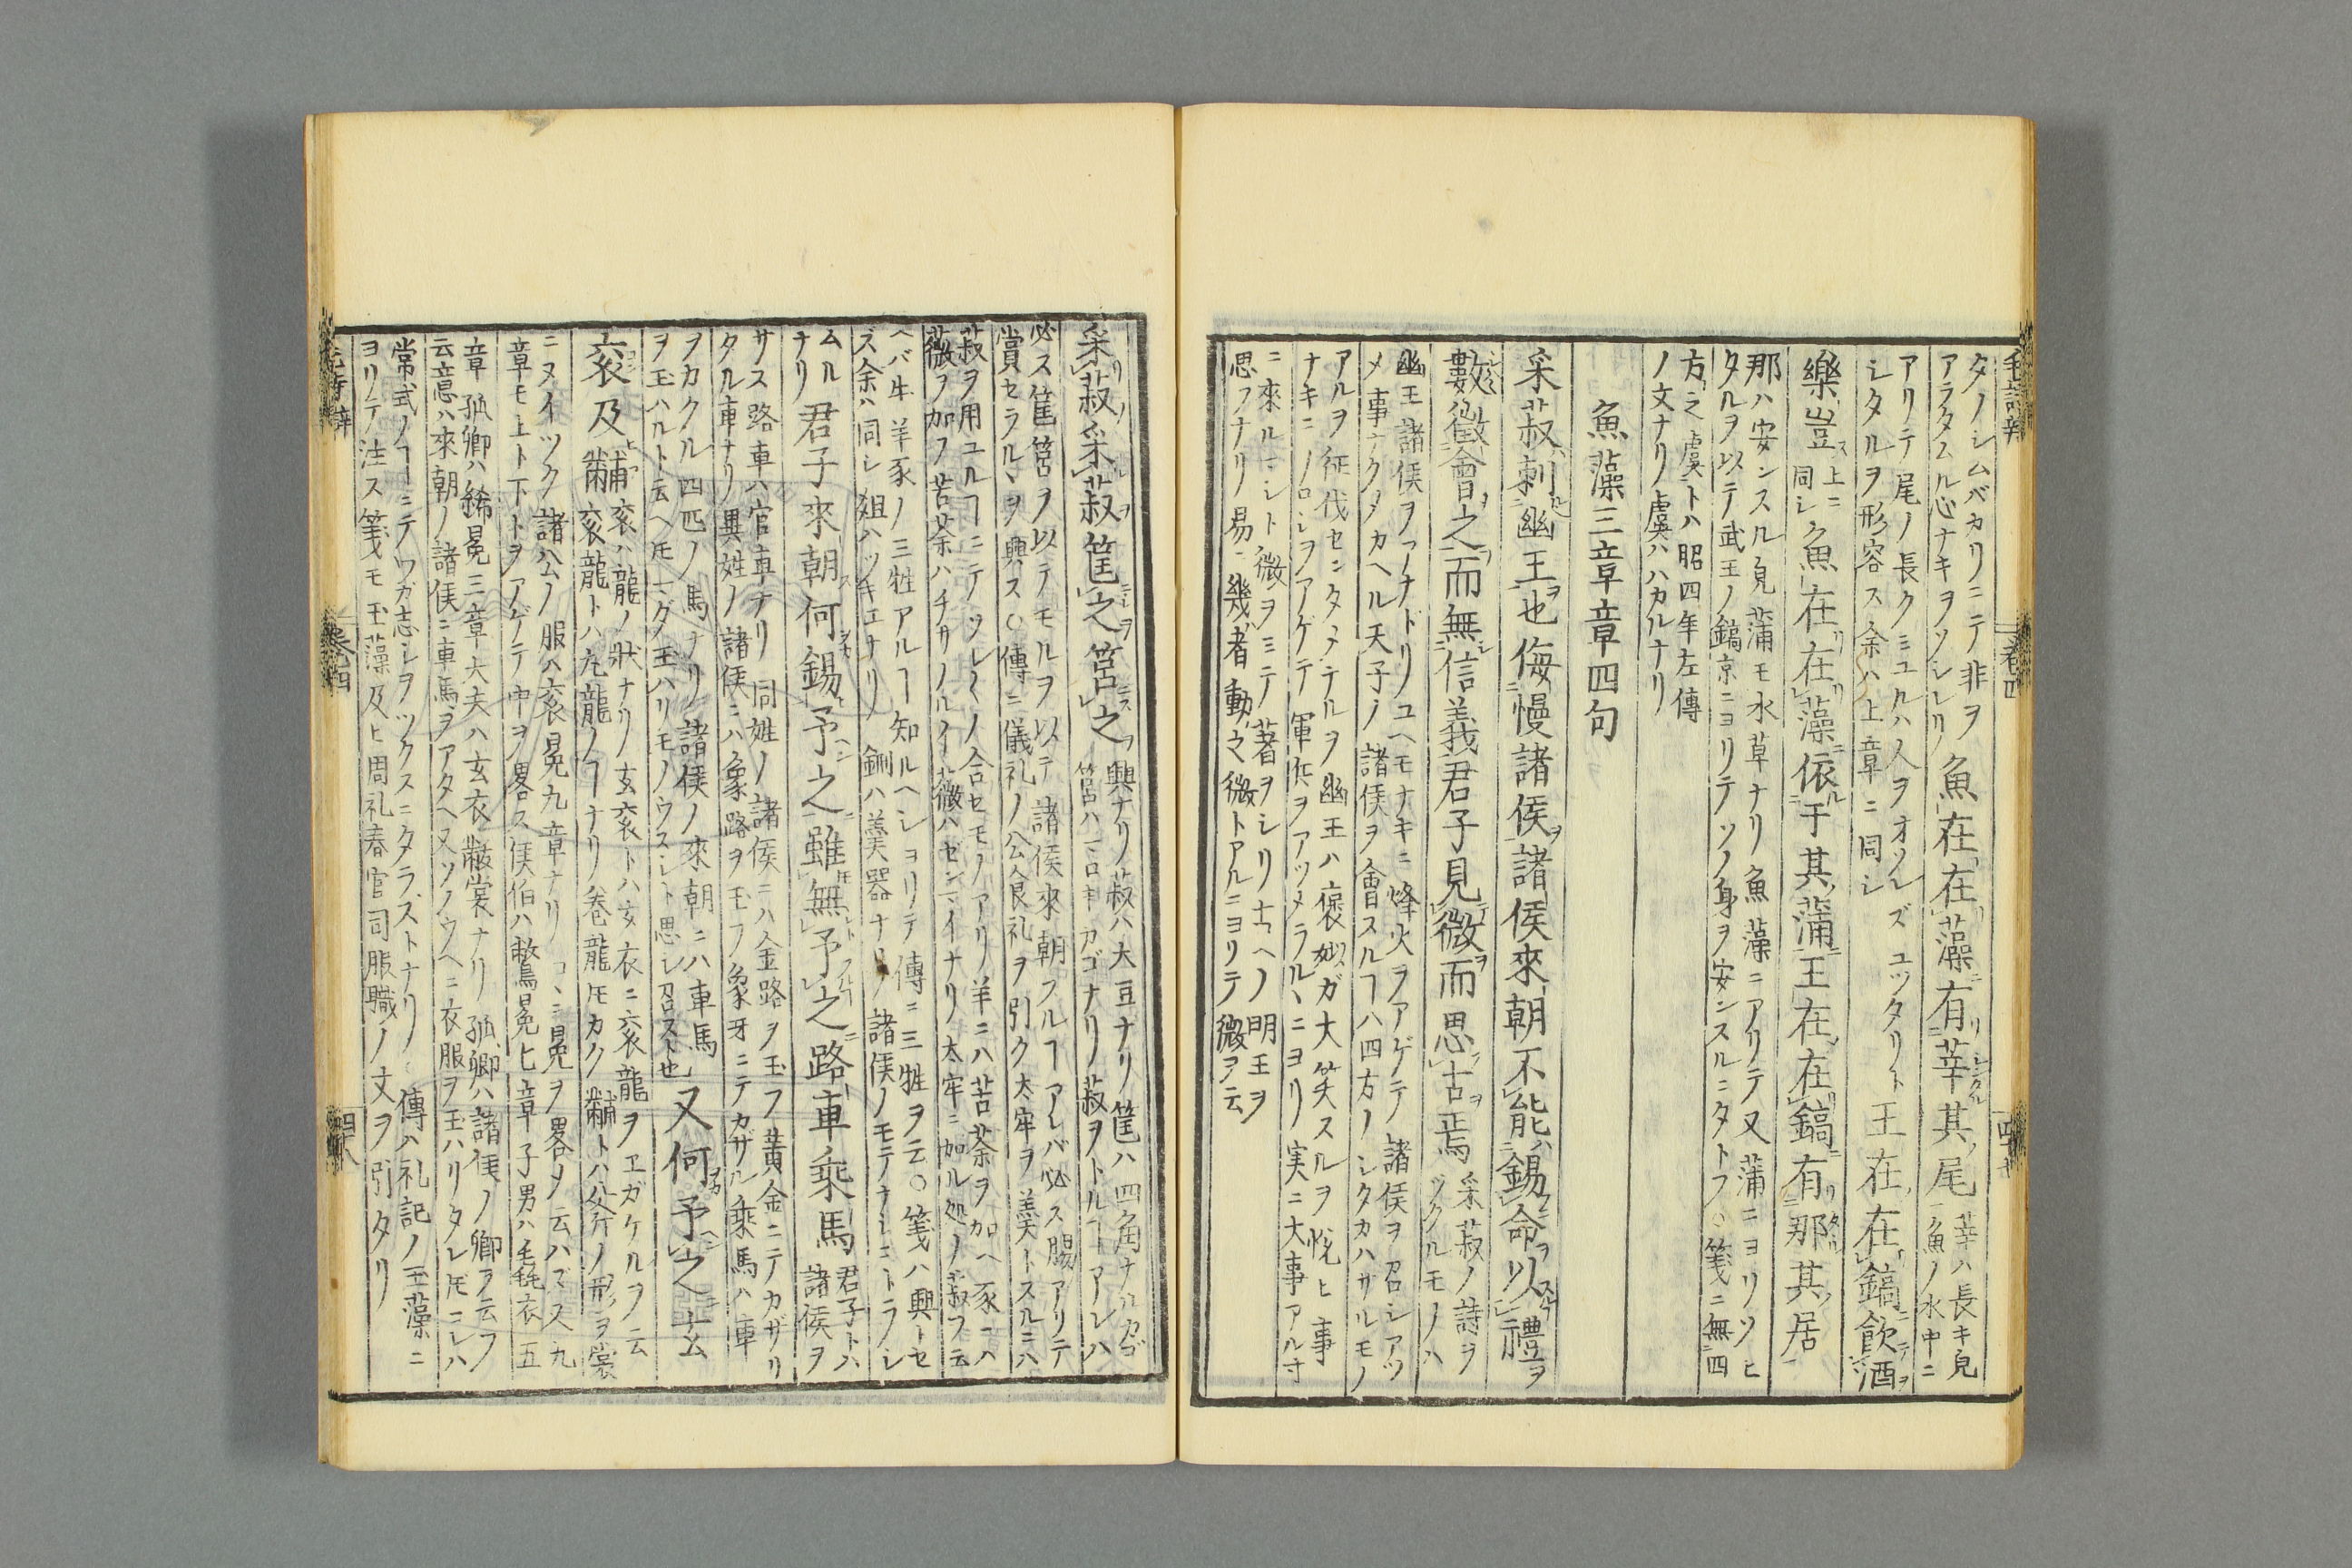 毛詩辨 卷四
タノシムバカリニテ非ヲ
アラタムル心ナキヲソシレリ
魚在在藻有莘其尾
莘ハ長キ皃
魚ノ水中ニ
アリテ尾ノ長クミユルハ人ヲオソレズユツタリト
シタルヲ形容ス余ハ上章ニ同シ
王在在鎬飲酒
樂豈
上ニ
同シ
魚在在藻依于其蒲王在在鎬有那其居
那ハ安ンスル皃蒲モ水草ナリ魚藻ニアリテ又蒲ニヨリソヒ
タルヲ以テ武王ノ鎬京ニヨリテソノ身ヲ安ンスルニタトフ○箋ニ無四
方之虞トハ昭四年左傳
ノ文ナリ虞ハハカルナリ
魚藻三章章四句
采菽刺幽王也侮慢諸侯諸侯來朝不能錫命以禮
數徵會之而無信義君子見微而思古焉
采菽ノ詩ヲ
ツクルモノハ
幽王諸侯ヲアナドリユヘモナキニ烽火ヲアゲテ諸侯ヲ召シアツ
メ事ナクメカヘル天子ノ諸侯ヲ會スルヿハ四方ノシタカハザルモノ
アルヲ征伐センタメナルヲ幽王ハ褒姒ガ大笑スルヲ悦ヒ事
ナキニノロシヲアゲテ軍兵ヲアツメラルヽニヨリ実ニ大事アル寸
ニ來ルマシト微ヲミテ著ヲシリ古ヘノ明王ヲ
思フナリ易ニ幾者動之微トアルニヨリテ微ヲ云
采菽采菽筐之筥之
興ナリ菽ハ大豆ナリ筐ハ四角ナルカゴ
筥ハマロキカゴナリ菽ヲトルヿアレハ
必ス筐筥ヲ以テモルヲ以テ諸侯來朝フルヿアレバ必ス賜アリテ
賞セラルヽヲ興ス○傳ニ儀礼ノ公食礼ヲ引ク太牢ヲ羹トスルニハ
菽ヲ用ユルヿニテソレ〱ノ合セモノアリ羊ニハ苦荼ヲ加ヘ豕ニハ
薇ヲ加フ苦荼ハチサノルイ薇ハゼンマイナリ太牢ニ加ル処ノ菽フ云
ヘバ牛羊豕ノ三牲アルヿ知ルヘシヨリテ傳ニ三牲ヲ云○箋ハ興トセ
ズ余ハ同シ俎ハツキエナリ鉶ハ羹器ナリ諸侯ノモテナシニトラシ
ムル
ナリ
君子來朝何錫予之雖無予之路車乘馬
君子トハ
諸侯ヲ
サス路車ハ官車ナリ同姓ノ諸侯ニハ金路ヲ玉フ黄金ニテカザリ
タル車ナリ異姓ノ諸侯ニハ象路ヲモフ象牙ニテカザル乘馬ハ車
ヲカクル四匹ノ馬ナリ諸侯ノ來朝ニハ車馬
ヲ玉ハルト云ヘ𪜈マダ玉ハリモノウスシト思シ召スト也
又何予之玄
袞及黼
袞ハ龍ノ狀ナリ玄袞トハ玄衣ニ袞龍ヲヱガケルヲ云
袞龍トハ九龍ノヿナリ卷龍𪜈カク黼トハ斧斤ノ形ヲ裳
ニヌイツク諸公ノ服ハ袞冕九章ナリコヽニ冕ヲ畧メ云ハズ又九
章モ上ト下トヲアゲテ中ヲ畧ス侯伯ハ鷩冕七章子男ハ毳衣五
章孤卿ハ絺冕三章大夫ハ玄衣黻裳ナリ孤卿ハ諸侯ノ卿ヲ云フ
云意ハ來朝ノ諸侯ニ車馬ヲアタヘ又ソノウヘニ衣服ヲ玉ハリタレ𪜈コレハ
常式ノヿニテワガ志シヲツクスニタラズトナリ傳ハ礼記ノ玉藻ニ
ヨリテ注ス箋モ玉藻及ヒ周礼春官司服職ノ文ヲ引タリ
毛詩辨 卷四 四十八